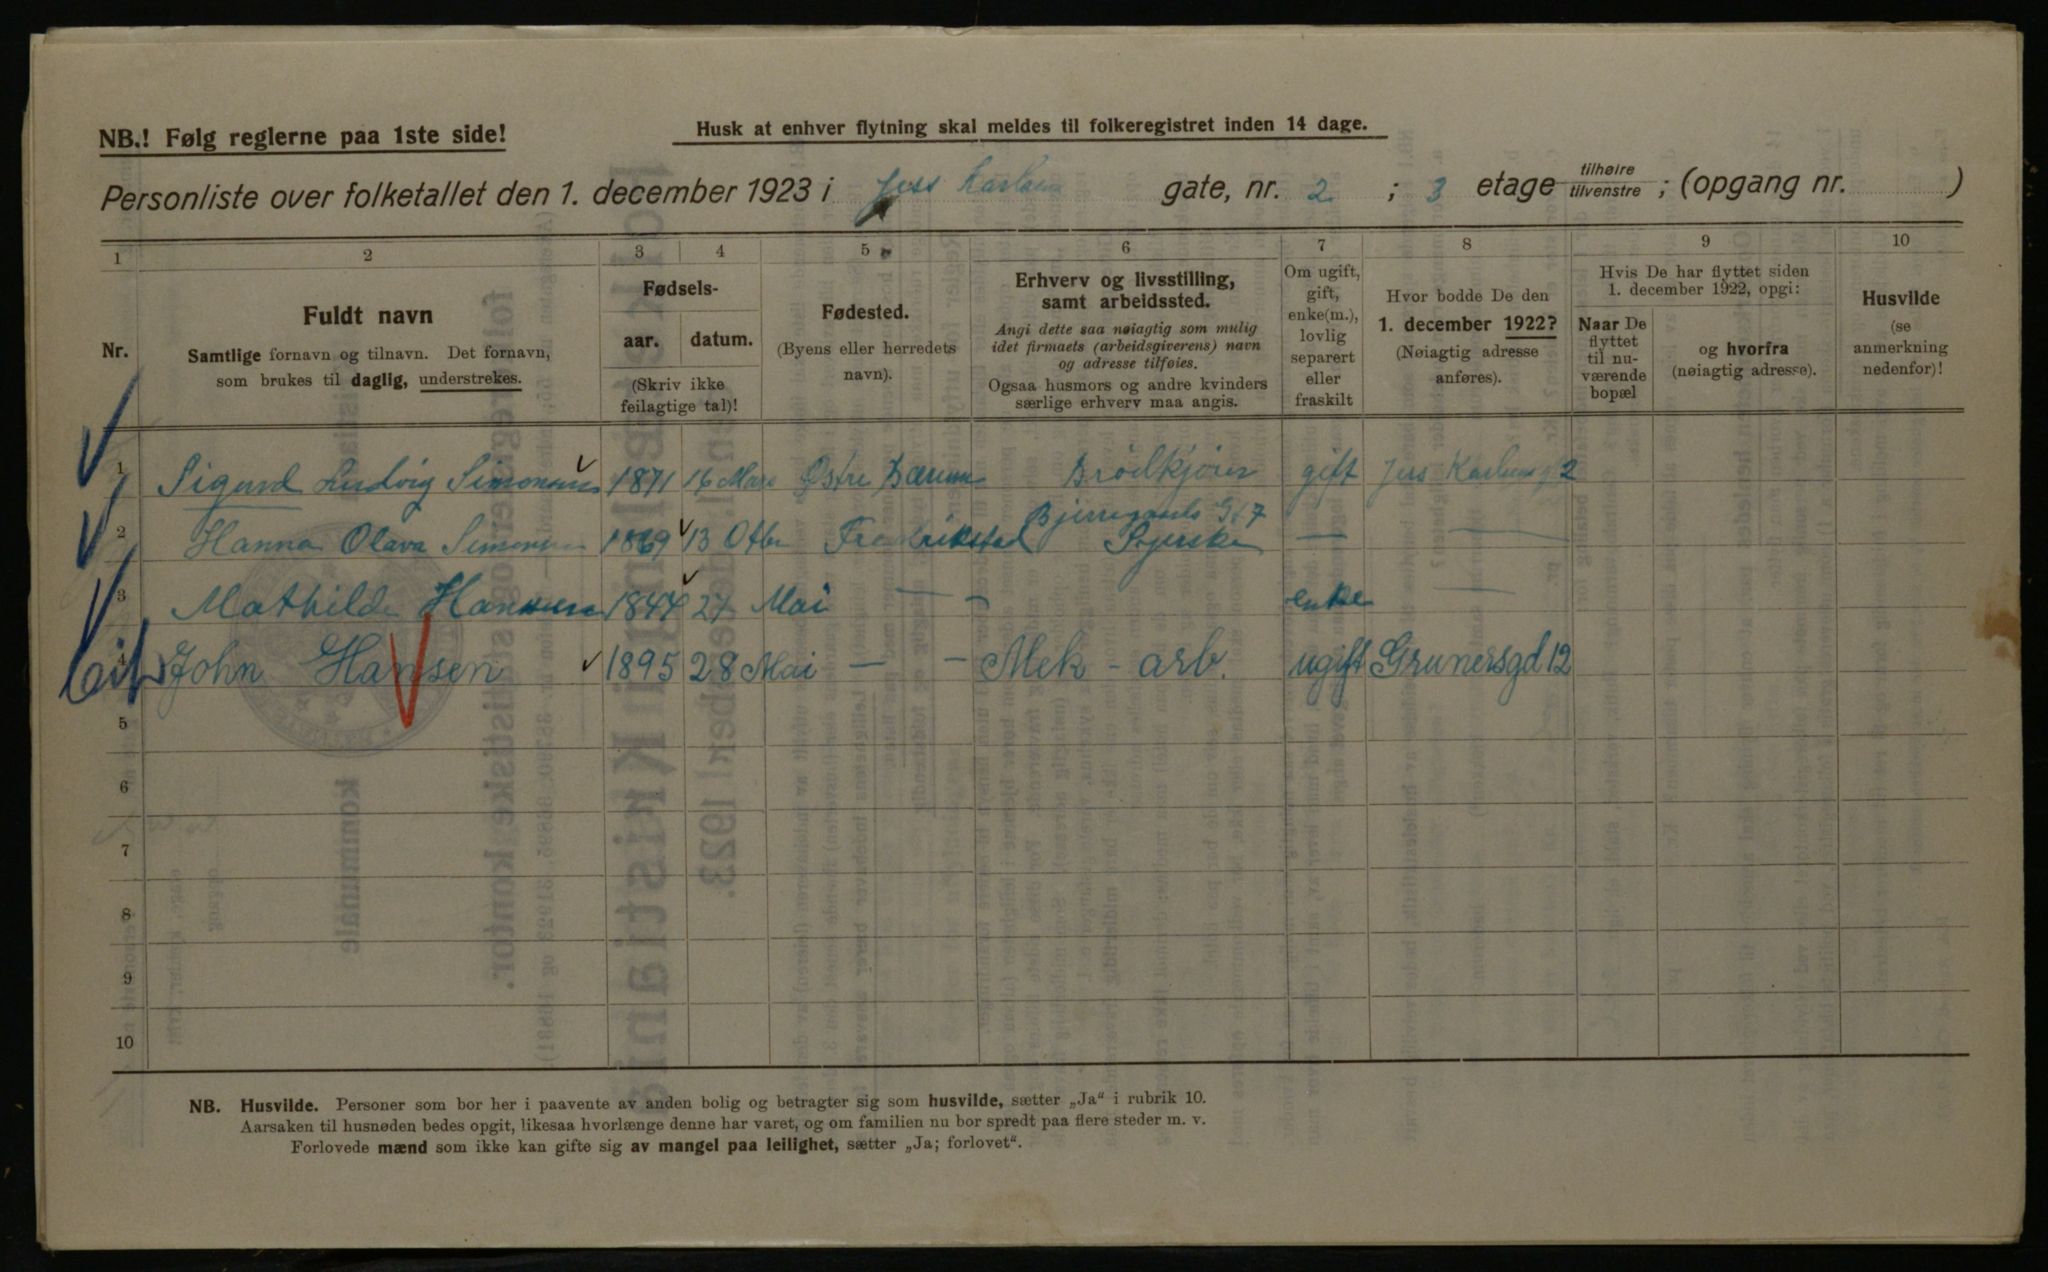 NB.! Følg reglerne paa 1ste side!
Husk at enhver flytning skal meldes til folkeregistret inden 14 dage.
Personliste over folketallet den 1. december 1923 i Jess Karlsens gate, nr. 2 ; 3 etage tilhøire tilvenstre ; (opgang nr. )
1 2 3 4 5 6 7 8 9 10
Nr.
Fuldt navn
Samtlige fornavn og tilnavn. Det fornavn,
som brukes til daglig, understrekes.
Fødsels-
aar. datum.
(Skriv ikke
feilagtige tal)!
Fødested.
(Byens eller herredets
navn).
Erhverv og livsstilling,
samt arbeidssted.
Angi dette saa nøiagtig som mulig
idet firmaets (arbeidsgiverens) navn
og adresse tilføies.
Ogsaa husmors og andre kvinders
særlige erhverv maa angis.
Om ugift,
gift,
enke(m.),
lovlig
separert
eller
fraskilt
Hvor bodde De den
1. december 1922?
(Nøiagtig adresse
anføres).
Hvis De har flyttet siden
1. december 1922, opgi:
Naar De
flyttet
til nu-
værende
bopæl
og hvorfra
(nøiagtig adresse).
Husvilde
(se
anmerkning
nedenfor)!
1 Sigurd Ludvig Simonsen 1871 16 Mars Østre Bærum Brödkjörer gift Jess Karlsens g 2
Bjerregaards Gt 7
2 Hanna Olava Simonsen 1869 13 Otbr Fredrikstad — —
3 Mathilde Hansen 1844 27 Mai — - enke —
4 John Hansen 1895 28 Mai — - Mek - arb. ugift Grunersgd 12
5
6
7
8
9
10
NB. Husvilde. Personer som bor her i paavente av anden bolig og betragter sig som husvilde, sætter „Ja" i rubrik 10.
Aarsaken til husnøden bedes opgit, likesaa hvorlænge denne har varet, og om familien nu bor spredt paa flere steder m. v.
Forlovede mænd som ikke kan gifte sig av mangel paa leilighet, sætter „Ja; forlovet".